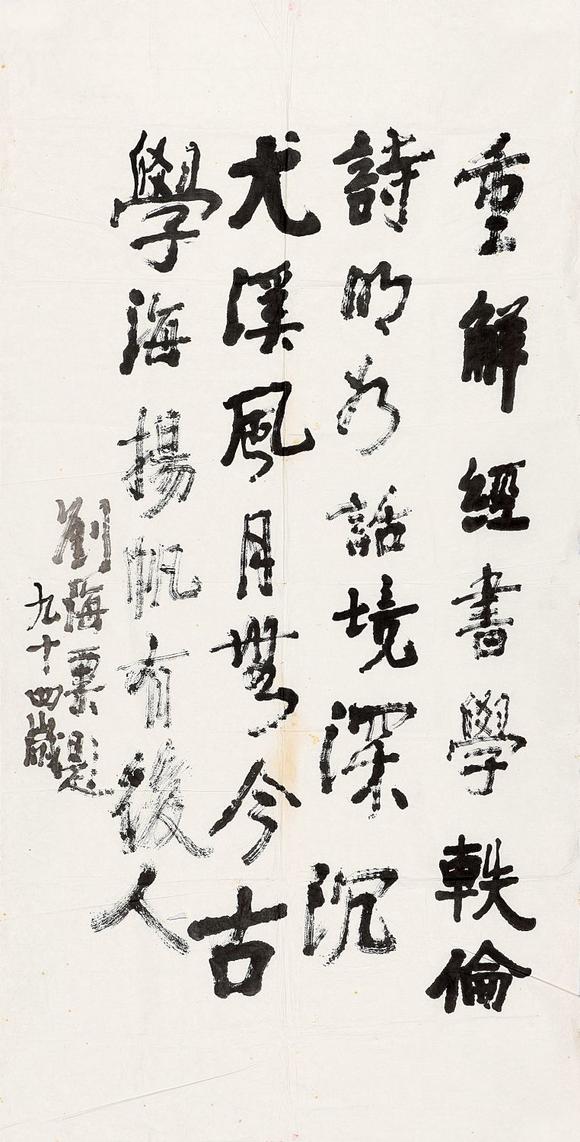 重解經書學軼倫
詩明話境深沉
尤溪風月無今古
學海揚帆有後人
劉海粟題
九十四歲